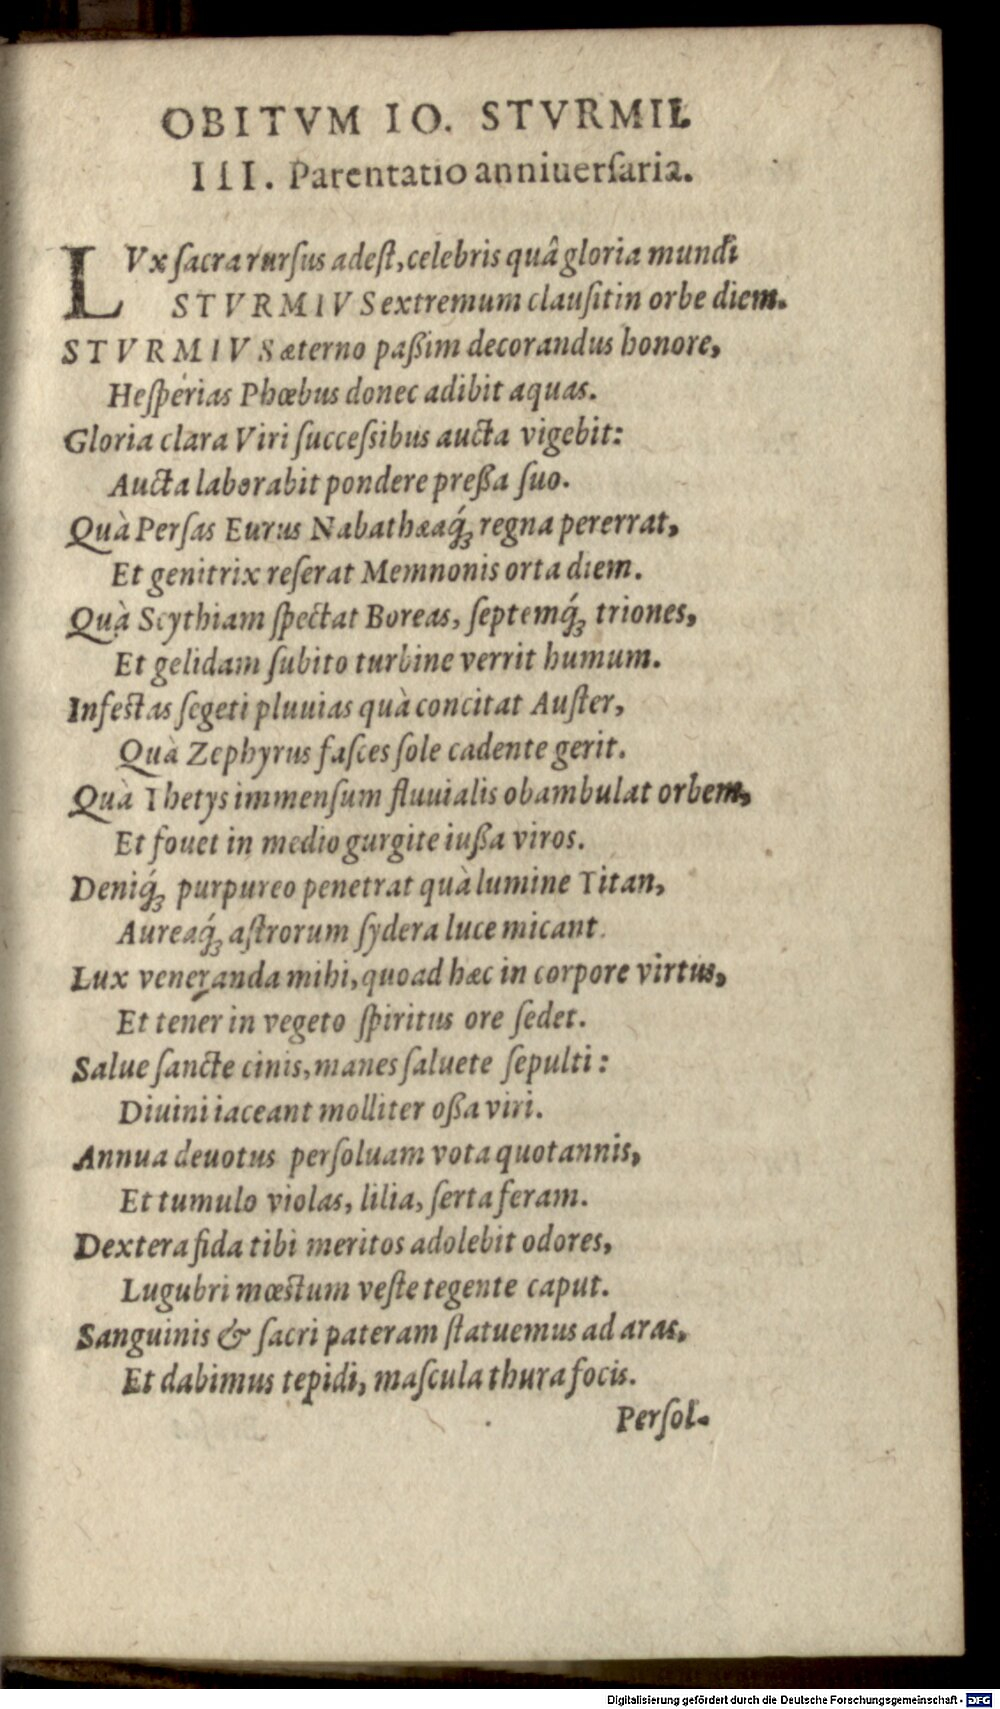 OBITVM IO. STVRMII.
III. Parentatio anniuerſaria.
LVx ſacra rurſus adeſt, celebris quâ gloria mundi
STVRMIVS extremum clauſit in orbe diem.
STVRMIVS æterno paßim decorandus honore,
Heſperias Phœbus donec adibit aquas.
Gloria clara Viri ſucceſsibus aucta vigebit:
Aucta laborabit pondere preßa ſuo.
Quà Perſas Eurus Nabathæaq́ꝫ regna pererrat,
Et genitrix reſerat Memnonis orta diem.
Quà Scythiam ſpectat Boreas, ſeptemq́ꝫ triones,
Et gelidam ſubito turbine verrit humum.
Infeſtas ſegeti pluuias quà concitat Auſter,
Quà Zephyrus faſces ſole cadente gerit.
Quà Thetys immenſum fluuialis obambulat orbem,
Et fouet in medio gurgite iußa viros.
Deniq́ꝫ purpureo penetrat quà lumine Titan,
Aureaq́ꝫ aſtrorum ſydera luce micant.
Lux veneranda mihi, quoad hæc in corpore virtus,
Et tener in vegeto ſpiritus ore ſedet.
Salue ſancte cinis, manes ſaluete ſepulti:
Diuini iaceant molliter oßa viri.
Annua deuotus perſoluam vota quotannis,
Et tumulo violas, lilia, ſerta feram.
Dextera fida tibi meritos adolebit odores,
Lugubri mœſtum veſte tegente caput.
Sanguinis & ſacri pateram ſtatuemus ad aras,
Et dabimus tepidi, maſcula thura focis.
Perſol-
Digitalisierung gefördert durch die Deutsche Forschungsgemeinschaft - DFG